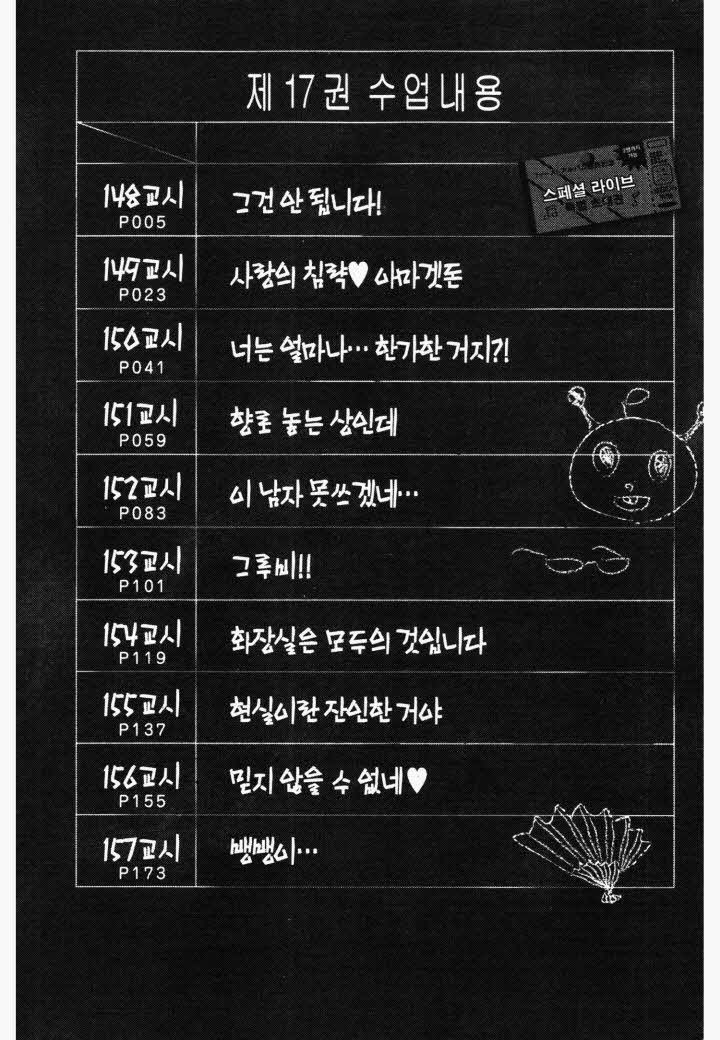 제 17권 수업내용
스페셜 라이브
148교시
P005
그건 안 됩니다!
149교시
P023
사랑의 침략♥ 아마겟돈
150교시
P041
너는 얼마나… 한가한 거지?!
151교시
P059
향로 놓는 상인데
152교시
P083
이 남자 못쓰겠네…
153교시
P101
그루비!!
154교시
P119
화장실은 모두의 것입니다
155교시
P137
현실이란 잔인한 거야
156교시
P155
믿지 않을 수 없네♥
157교시
P173
뱅뱅이…